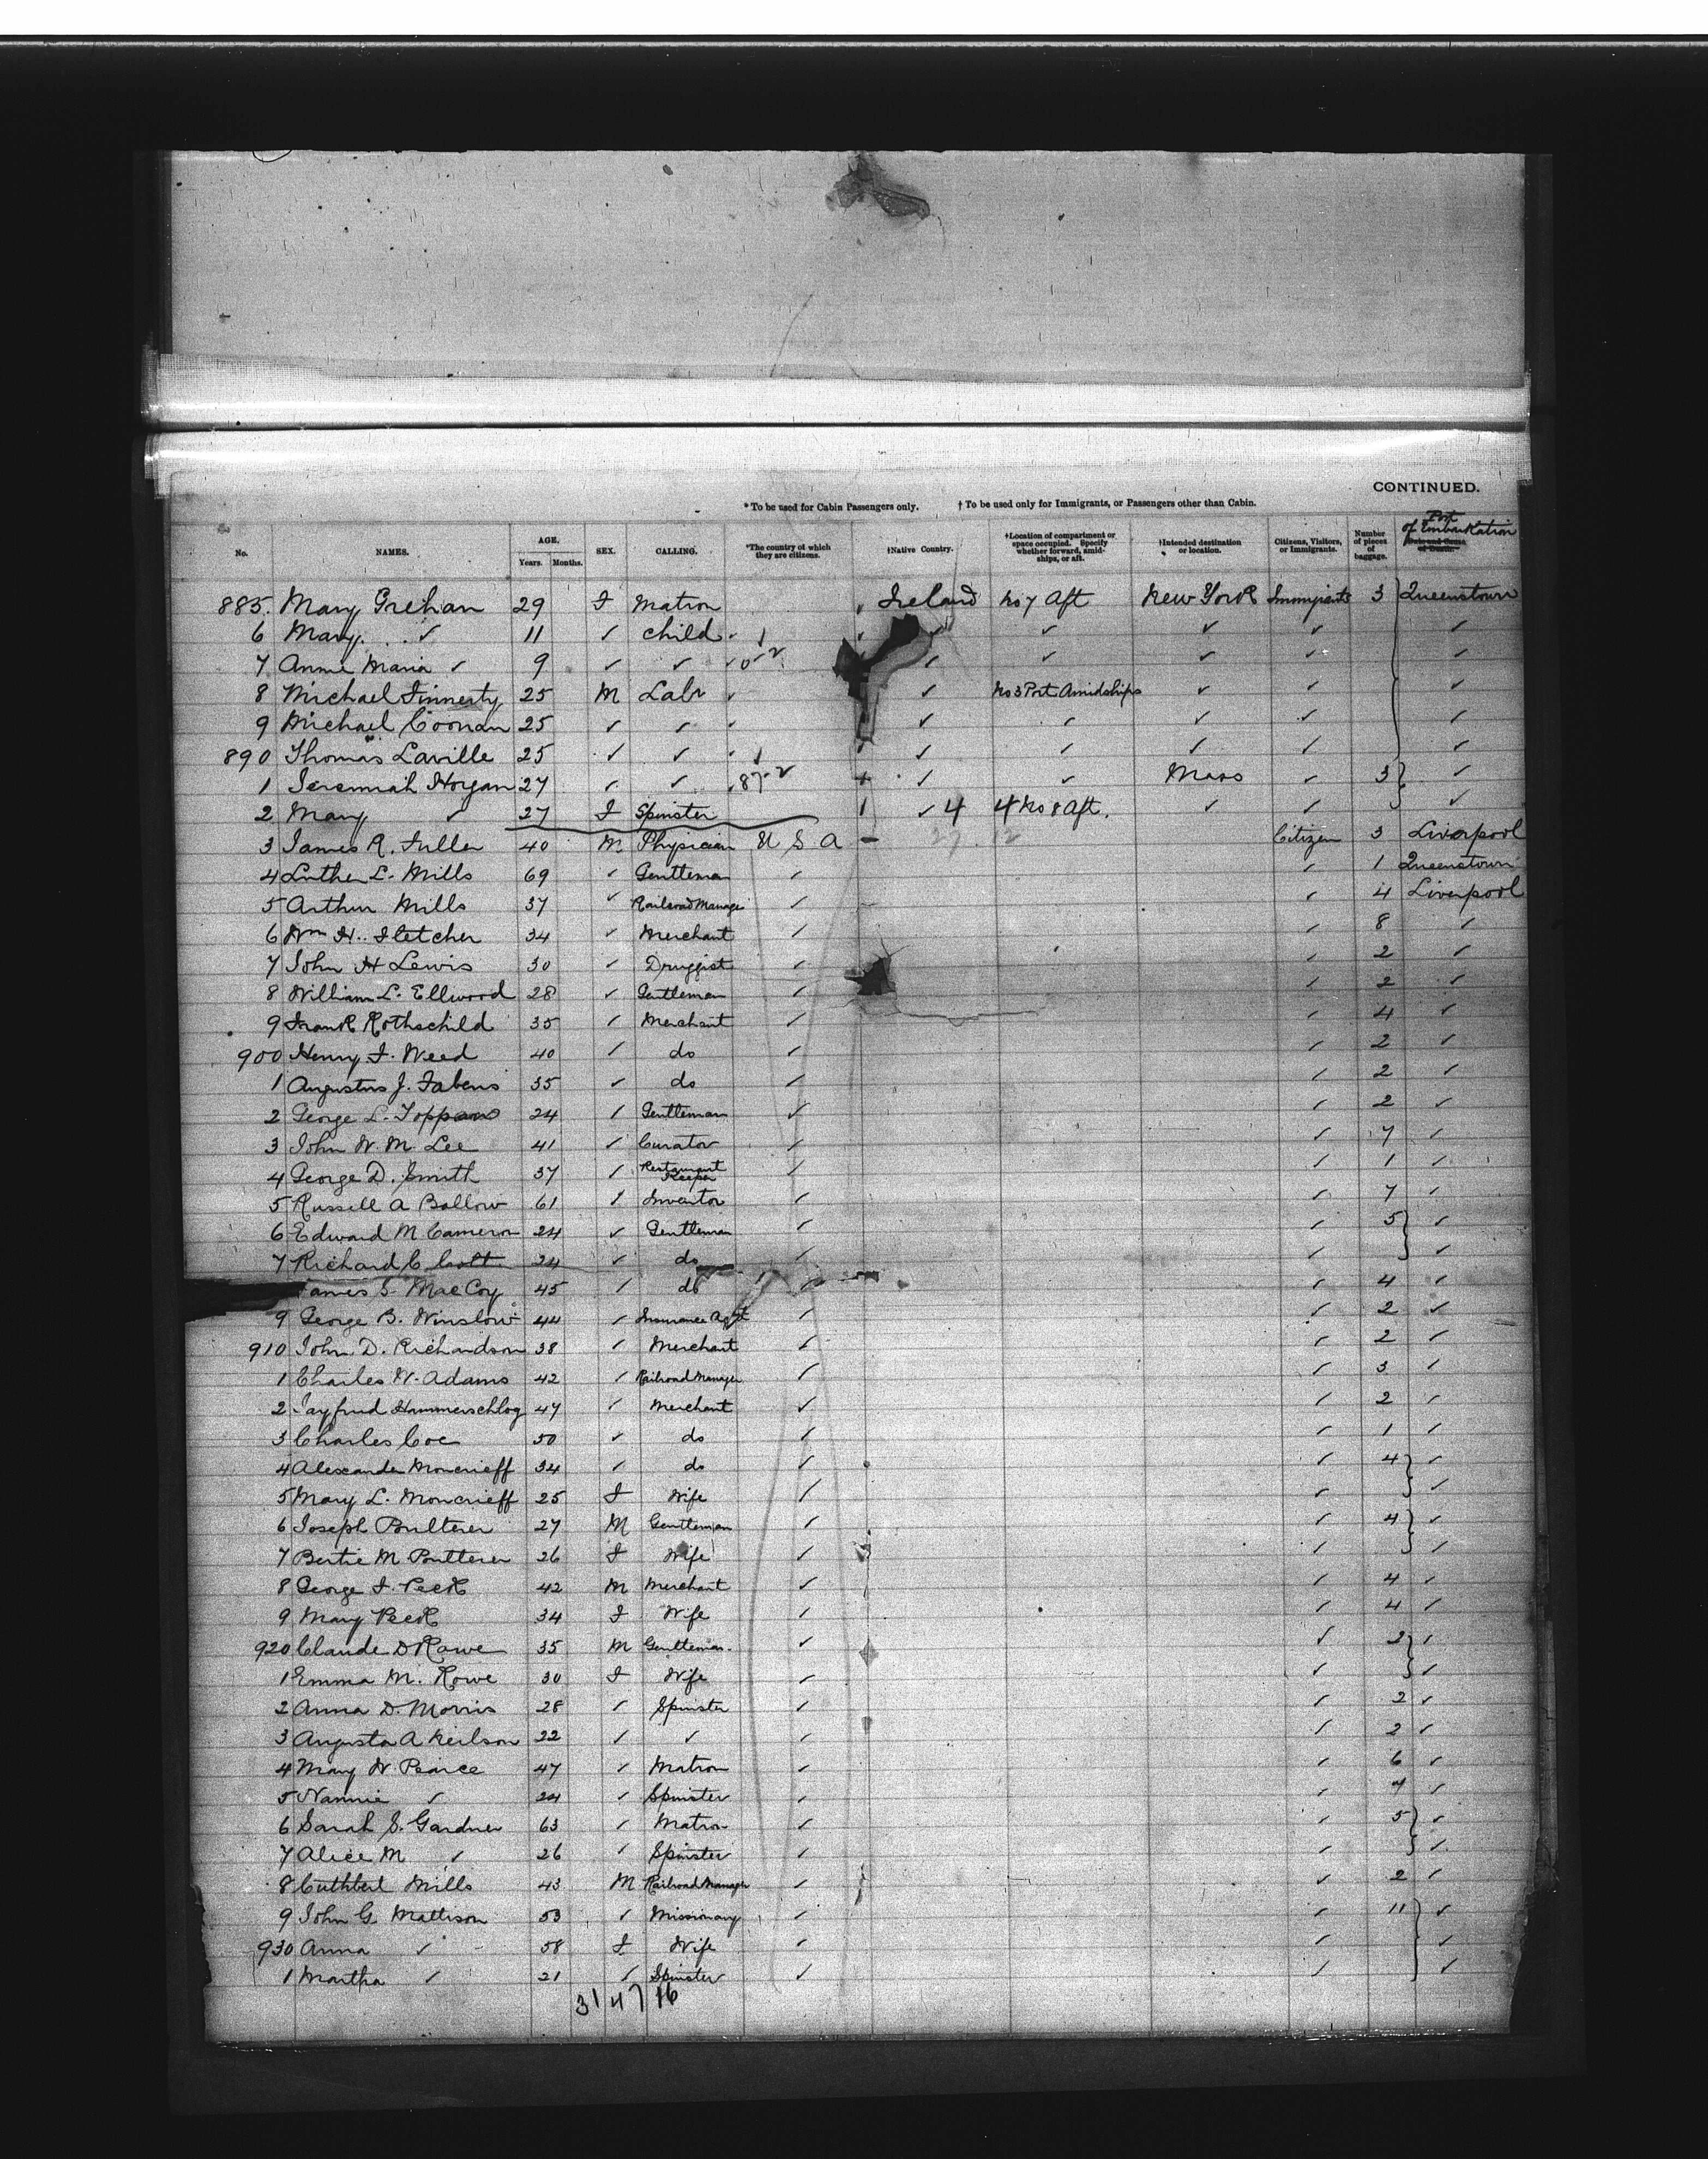 CONTINUED.
* To be used for Cabin Passengers only. † To be used only for Immigrants, or Passengers other than Cabin.
No. NAMES. AGE. Years. Months. SEX. CALLING. *The country of which they are citizens. †Native Country. †Location of compartment or space occupied. Specify whether forward, amidships, or aft. †Intended destination or location. Citizens, Visitors, or Immigrants. Number of pieces of baggage. Port of Embarkation
885. Mary Grehan 29 F Matron Ireland No 7 Aft New York Immigrants 3 Queenstown
6 Mary ✓ 11 ✓ child ✓ ✓ ✓ ✓ ✓
7 Annie Maria ✓ 9 ✓ ✓ ✓ ✓ ✓ ✓ ✓
8 Michael Finnerty 25 M Labr ✓ No 3 Port Amidships ✓ ✓ ✓
9 Michael Coonan 25 ✓ ✓ ✓ ✓ ✓ ✓ ✓
890 Thomas Laville 25 ✓ ✓ ✓ ✓ ✓ ✓ ✓
1 Jeremiah Horgan 27 ✓ ✓ ✓ ✓ Mass ✓ 3 ✓
2 Mary ✓ 27 F Spinster ✓ 4 4 No 8 Aft. ✓ ✓ ✓
3 James R. Fuller 40 M. Physician U S A Citizen 3 Liverpool
4 Luther L. Mills 69 ✓ Gentleman ✓ ✓ 1 Queenstown
5 Arthur Mills 37 ✓ Railroad Manager ✓ ✓ 4 Liverpool
6 Wm H. Fletcher 34 ✓ Merchant ✓ ✓ 8 ✓
7 John H Lewis 30 ✓ Druggist ✓ ✓ 2 ✓
8 William L. Ellwood 28 ✓ Gentleman ✓ ✓ 2 ✓
9 Frank Rothschild 35 ✓ Merchant ✓ ✓ 4 ✓
900 Henry F. Weed 40 ✓ do ✓ ✓ 2 ✓
1 Augustus J. Fabens 35 ✓ do ✓ ✓ 2 ✓
2 George L. Toppan 24 ✓ Gentleman ✓ ✓ 2 ✓
3 John W. M. Lee 41 ✓ Curator ✓ ✓ 7 ✓
4 George D. Smith 37 ✓ Restaurant Keeper ✓ ✓ 1 ✓
5 Russell A Ballow 61 ✓ Inventor ✓ ✓ 7 ✓
6 Edward M Cameron 24 ✓ Gentleman ✓ ✓ 5 ✓
7 Richard C Colt 24 ✓ do ✓ ✓ ✓
James S. MacCoy 45 ✓ do ✓ ✓ 4 ✓
9 George B. Winslow 44 ✓ Insurance Agt ✓ ✓ 2 ✓
910 John D. Richardson 38 ✓ Merchant ✓ ✓ 2 ✓
1 Charles W. Adams 42 ✓ Railroad Manager ✓ ✓ 3 ✓
2 Hammerschlog 47 ✓ Merchant ✓ ✓ 2 ✓
3 Charles Coe 50 ✓ do ✓ ✓ 1 ✓
4 Alexander Moncrieff 34 ✓ do ✓ ✓ 4 ✓
5 Mary L. Moncrieff 25 F Wife ✓ ✓ ✓
6 Joseph Poulterer 27 M Gentleman ✓ ✓ 4 ✓
7 Bertie M Poulterer 26 F Wife ✓ ✓ ✓
8 George F. Peek 42 M Merchant ✓ ✓ 4 ✓
9 Mary Peek 34 F Wife ✓ ✓ 4 ✓
920 Claude D Rowe 35 M Gentleman ✓ ✓ 2 ✓
1 Emma M. Rowe 30 F Wife ✓ ✓ ✓
2 Anna D. Morris 28 ✓ Spinster ✓ ✓ 2 ✓
3 Augusta A Neilson 22 ✓ ✓ ✓ ✓ 2 ✓
4 Mary W Pearce 47 ✓ Matron ✓ ✓ 6 ✓
5 Nannie ✓ 24 ✓ Spinster ✓ ✓ 4 ✓
6 Sarah S. Gardner 63 ✓ Matron ✓ ✓ 5 ✓
7 Alice M ✓ 26 ✓ Spinster ✓ ✓ ✓
8 Cuthbert Mills 43 M Railroad Manager ✓ ✓ 2 ✓
9 John G. Mattison 53 ✓ Missionary ✓ ✓ 11 ✓
930 Anna ✓ 58 F Wife ✓ ✓ ✓
1 Martha ✓ 21 ✓ Spinster ✓ ✓ ✓
31 47 16